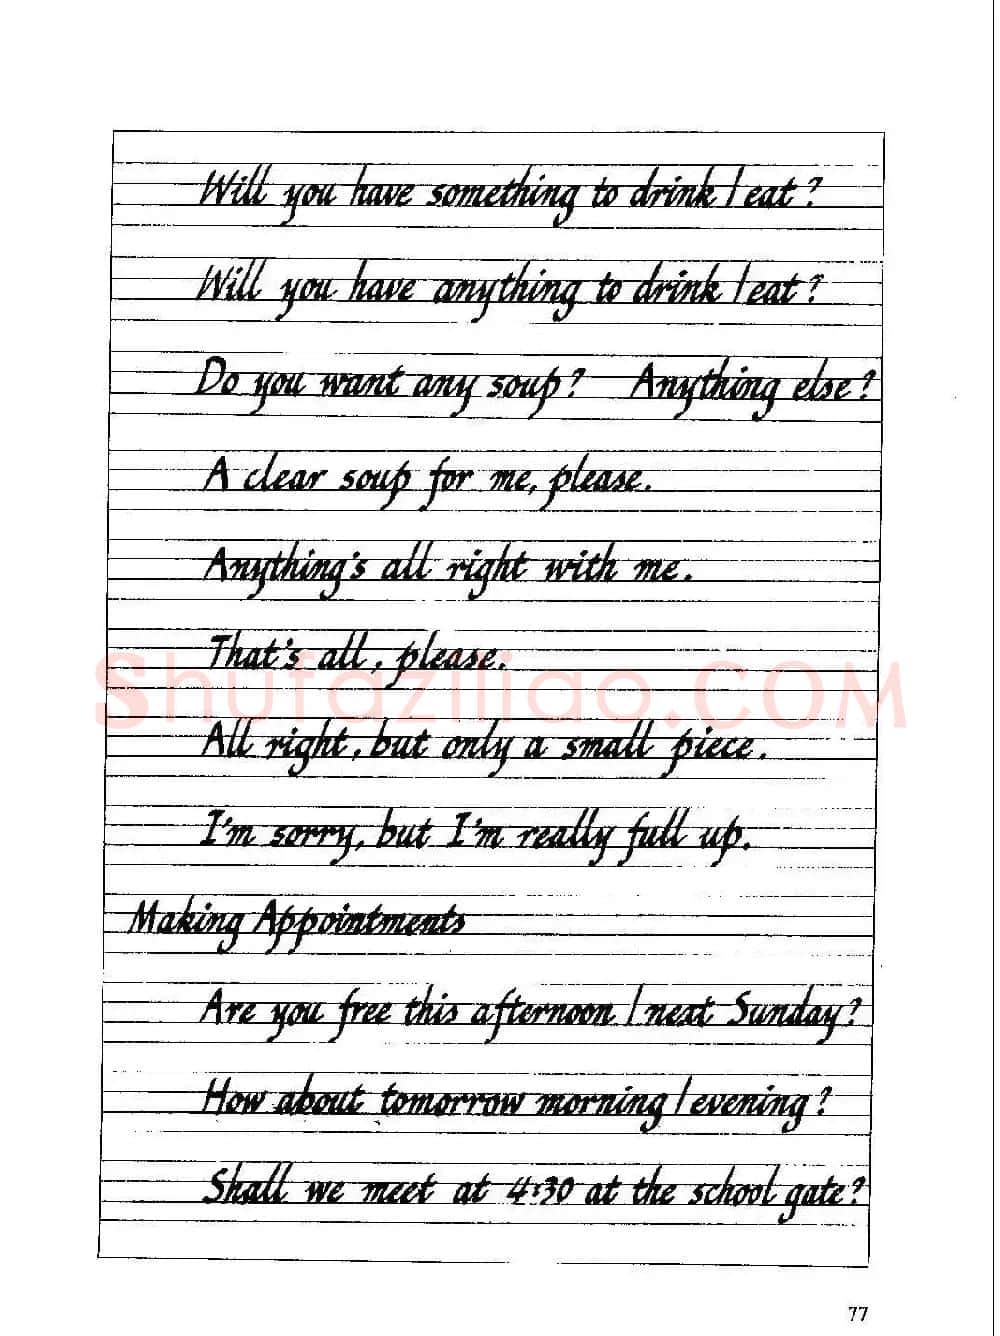 Will you have something to drink / eat?
Will you have anything to drink / eat?
Do you want any soup? Anything else?
A clear soup for me, please.
Anything's all right with me.
That's all, please.
Shufaziliao.COM
All right, but only a small piece.
I'm sorry, but I'm really full up.
Making Appointments
Are you free this afternoon / next Sunday?
How about tomorrow morning / evening?
Shall we meet at 4:30 at the school gate?
77